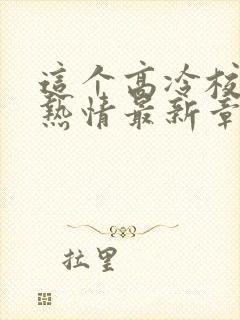 這个高冷校
熱情最新章
拉里